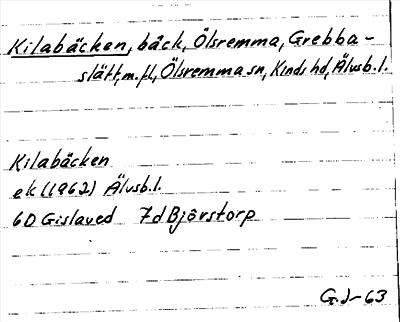 Kilabäcken, bäck, Ölsremma, Grebba-
slätt, m.fl, Ölsremma sn, Kinds hd, Älvsb.l.
Kilabäcken
ek (1962) Älvsb.l.
6D Gislaved 7d Björstorp
GJ-63